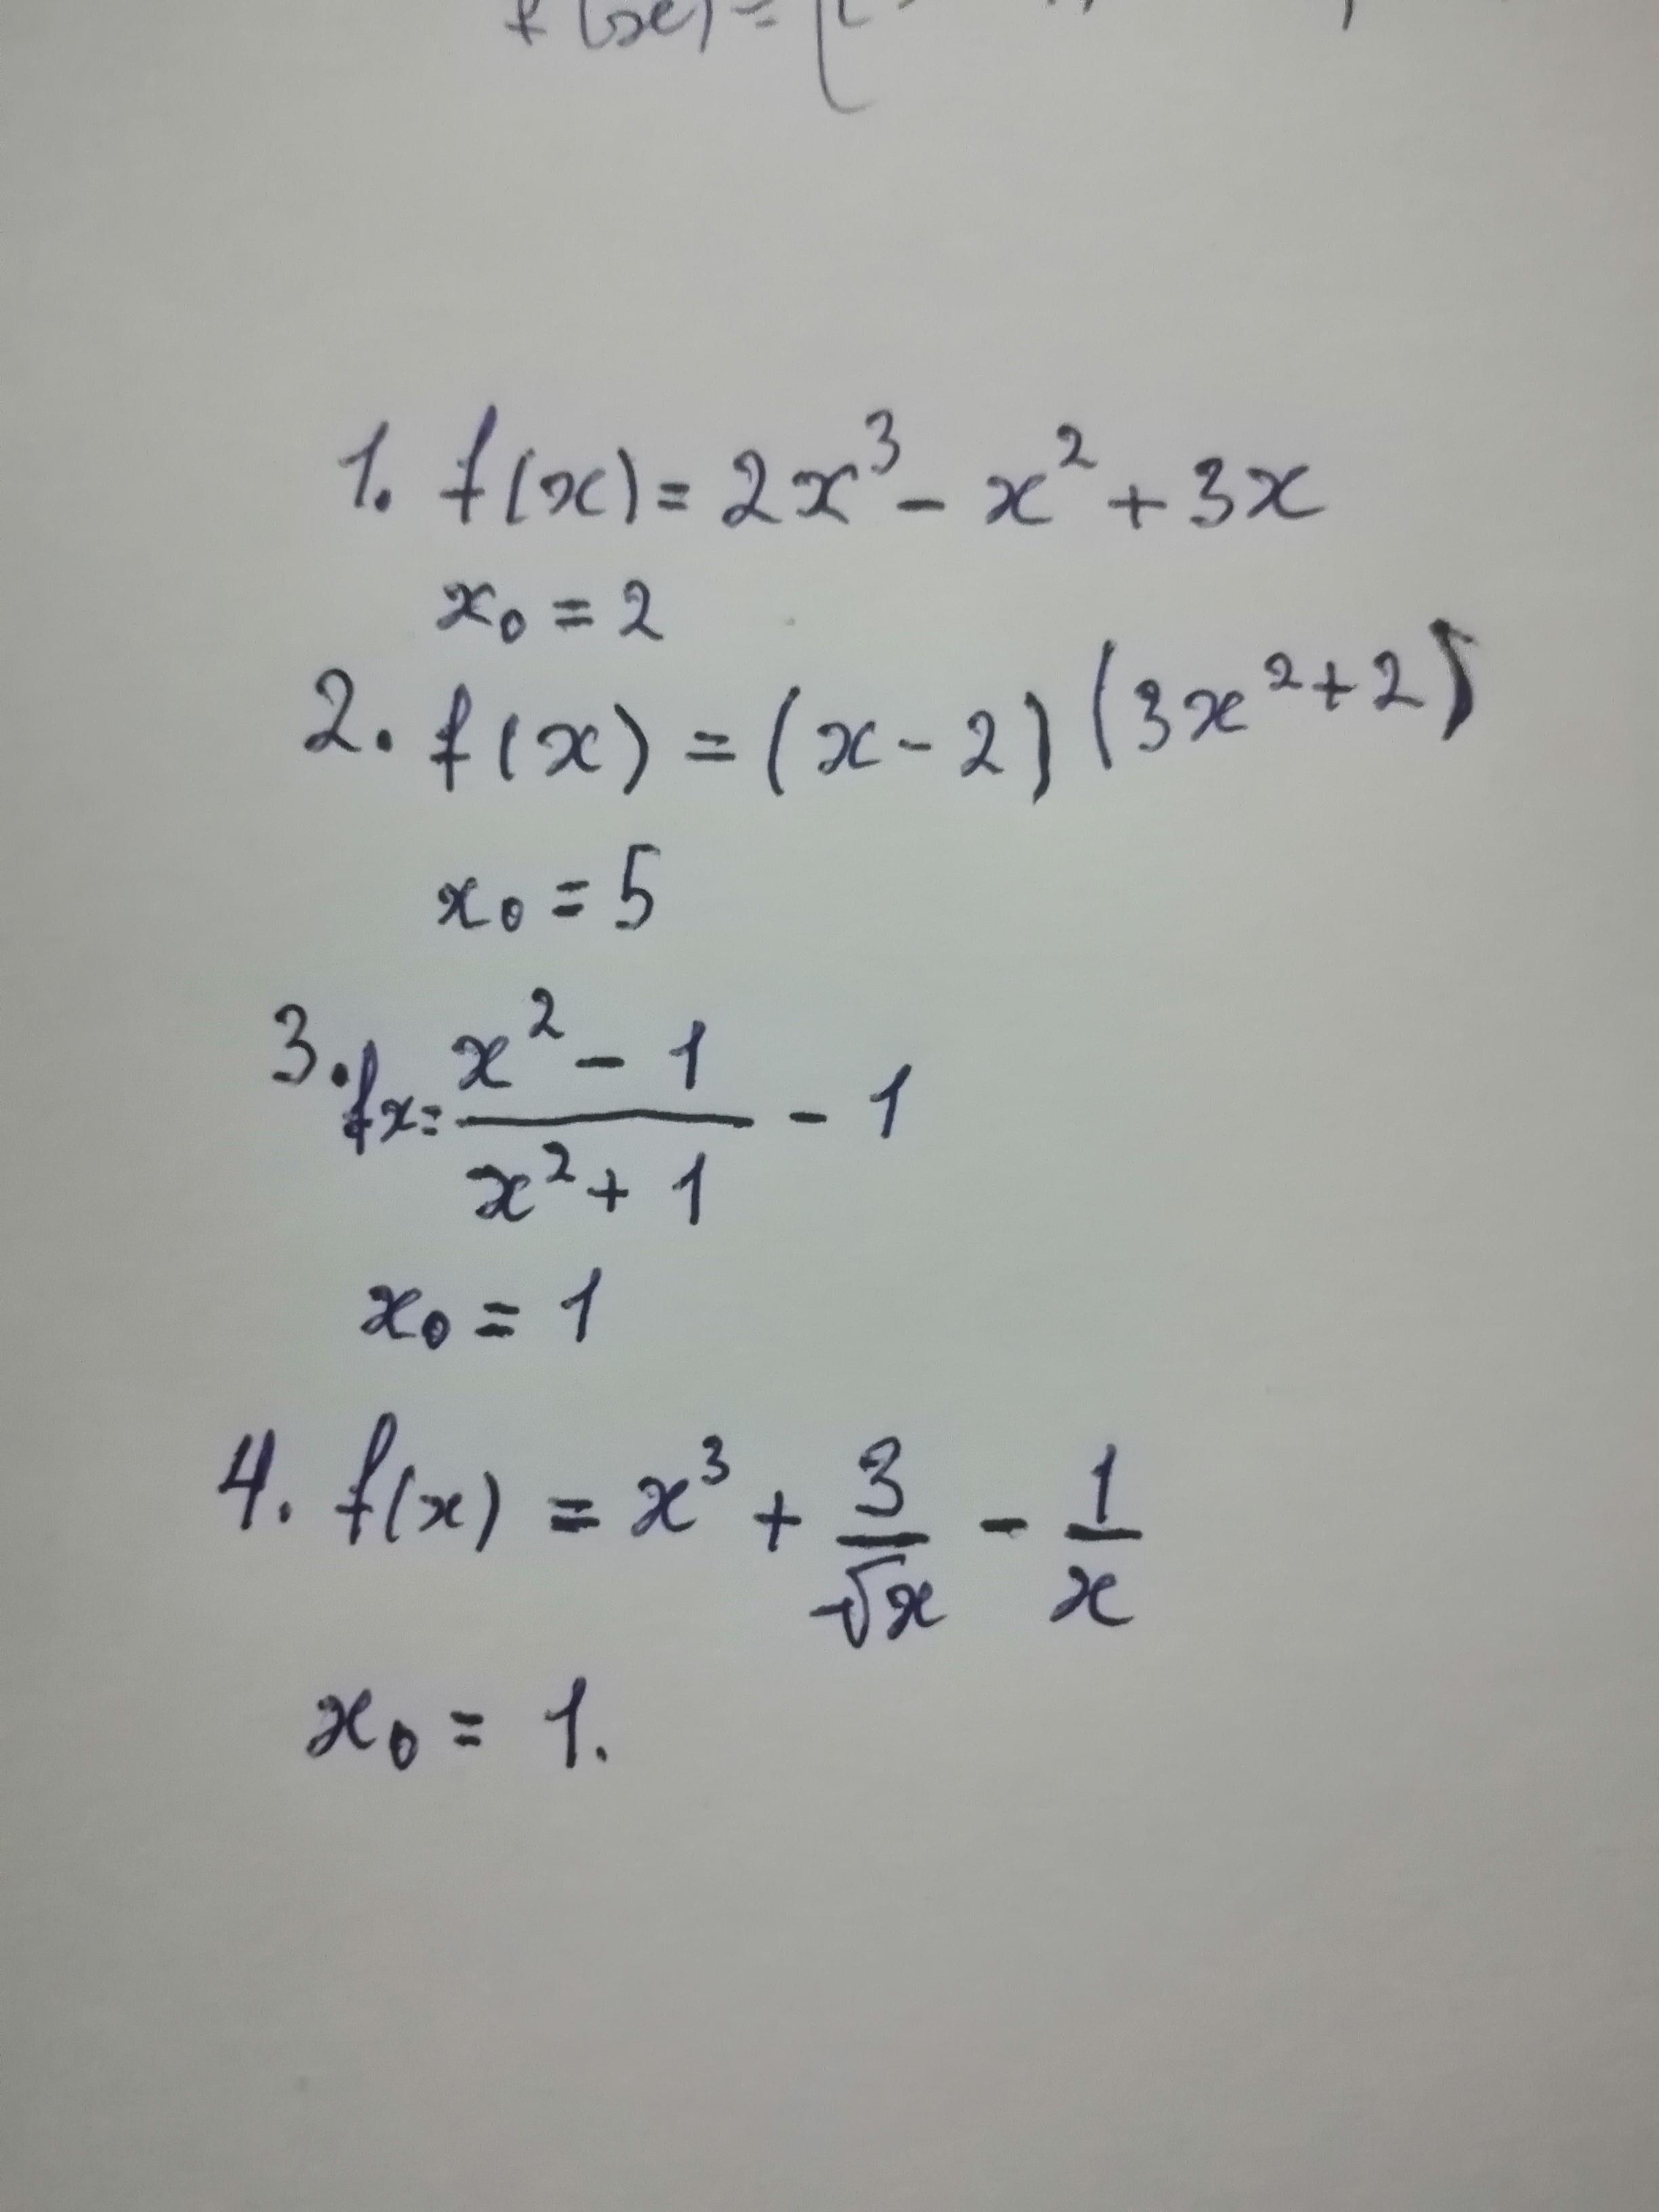 f(x) =
1. f(x) = 2x³ - x² + 3x
x₀ = 2
2. f(x) = (x - 2) (3x² + 2)
x₀ = 5
3. fx = (x² - 1)/(x² + 1) - 1
x₀ = 1
4. f(x) = x³ + 3/√x - 1/x
x₀ = 1.